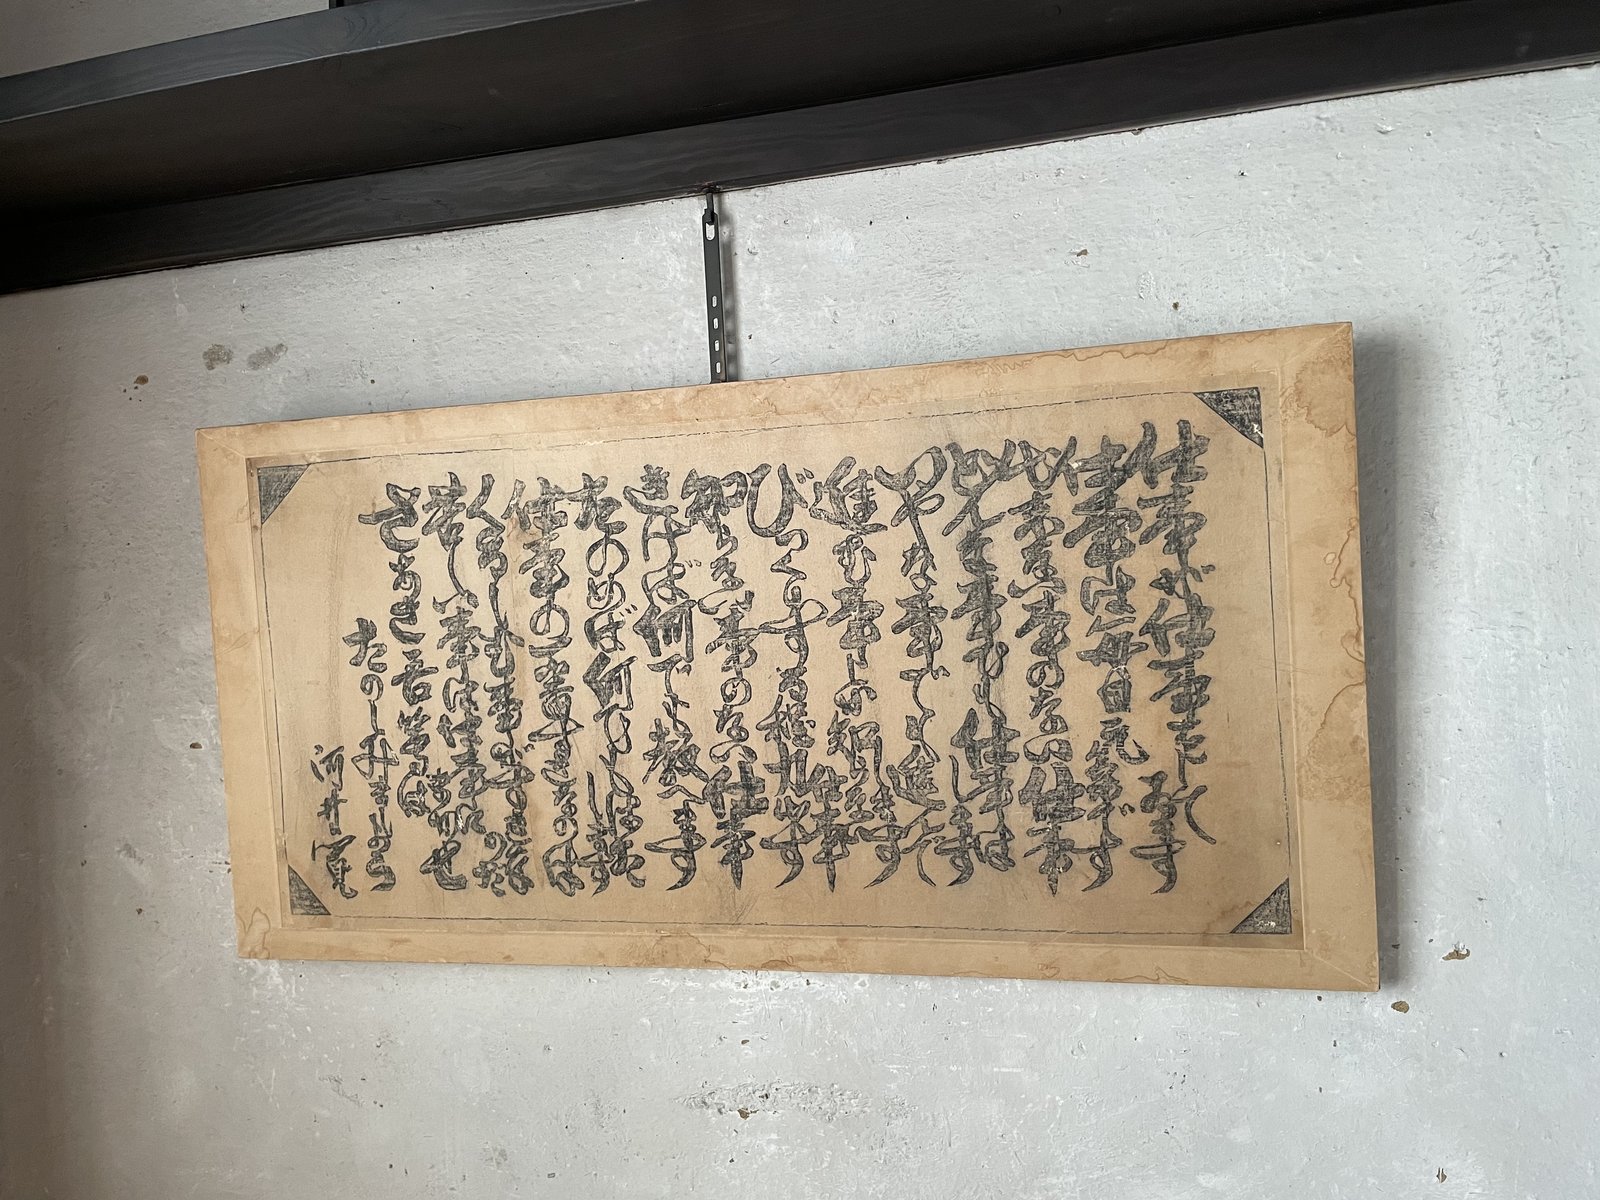 仕事が仕事をしてゐます
仕事は毎日元気です
出来ない事のない仕事
どんな事でも仕事はします
いやな事でも進んでします
進む事しか知らない仕事
びっくりする程力出す
知らない事のない仕事
きけば何でも教へます
たのめば何でもはたします
仕事の一番すきなのは
くるしむ事がすきなのだ
苦しい事は仕事にまかせ
さあさ吾等は
たのしみましょう
河井寛